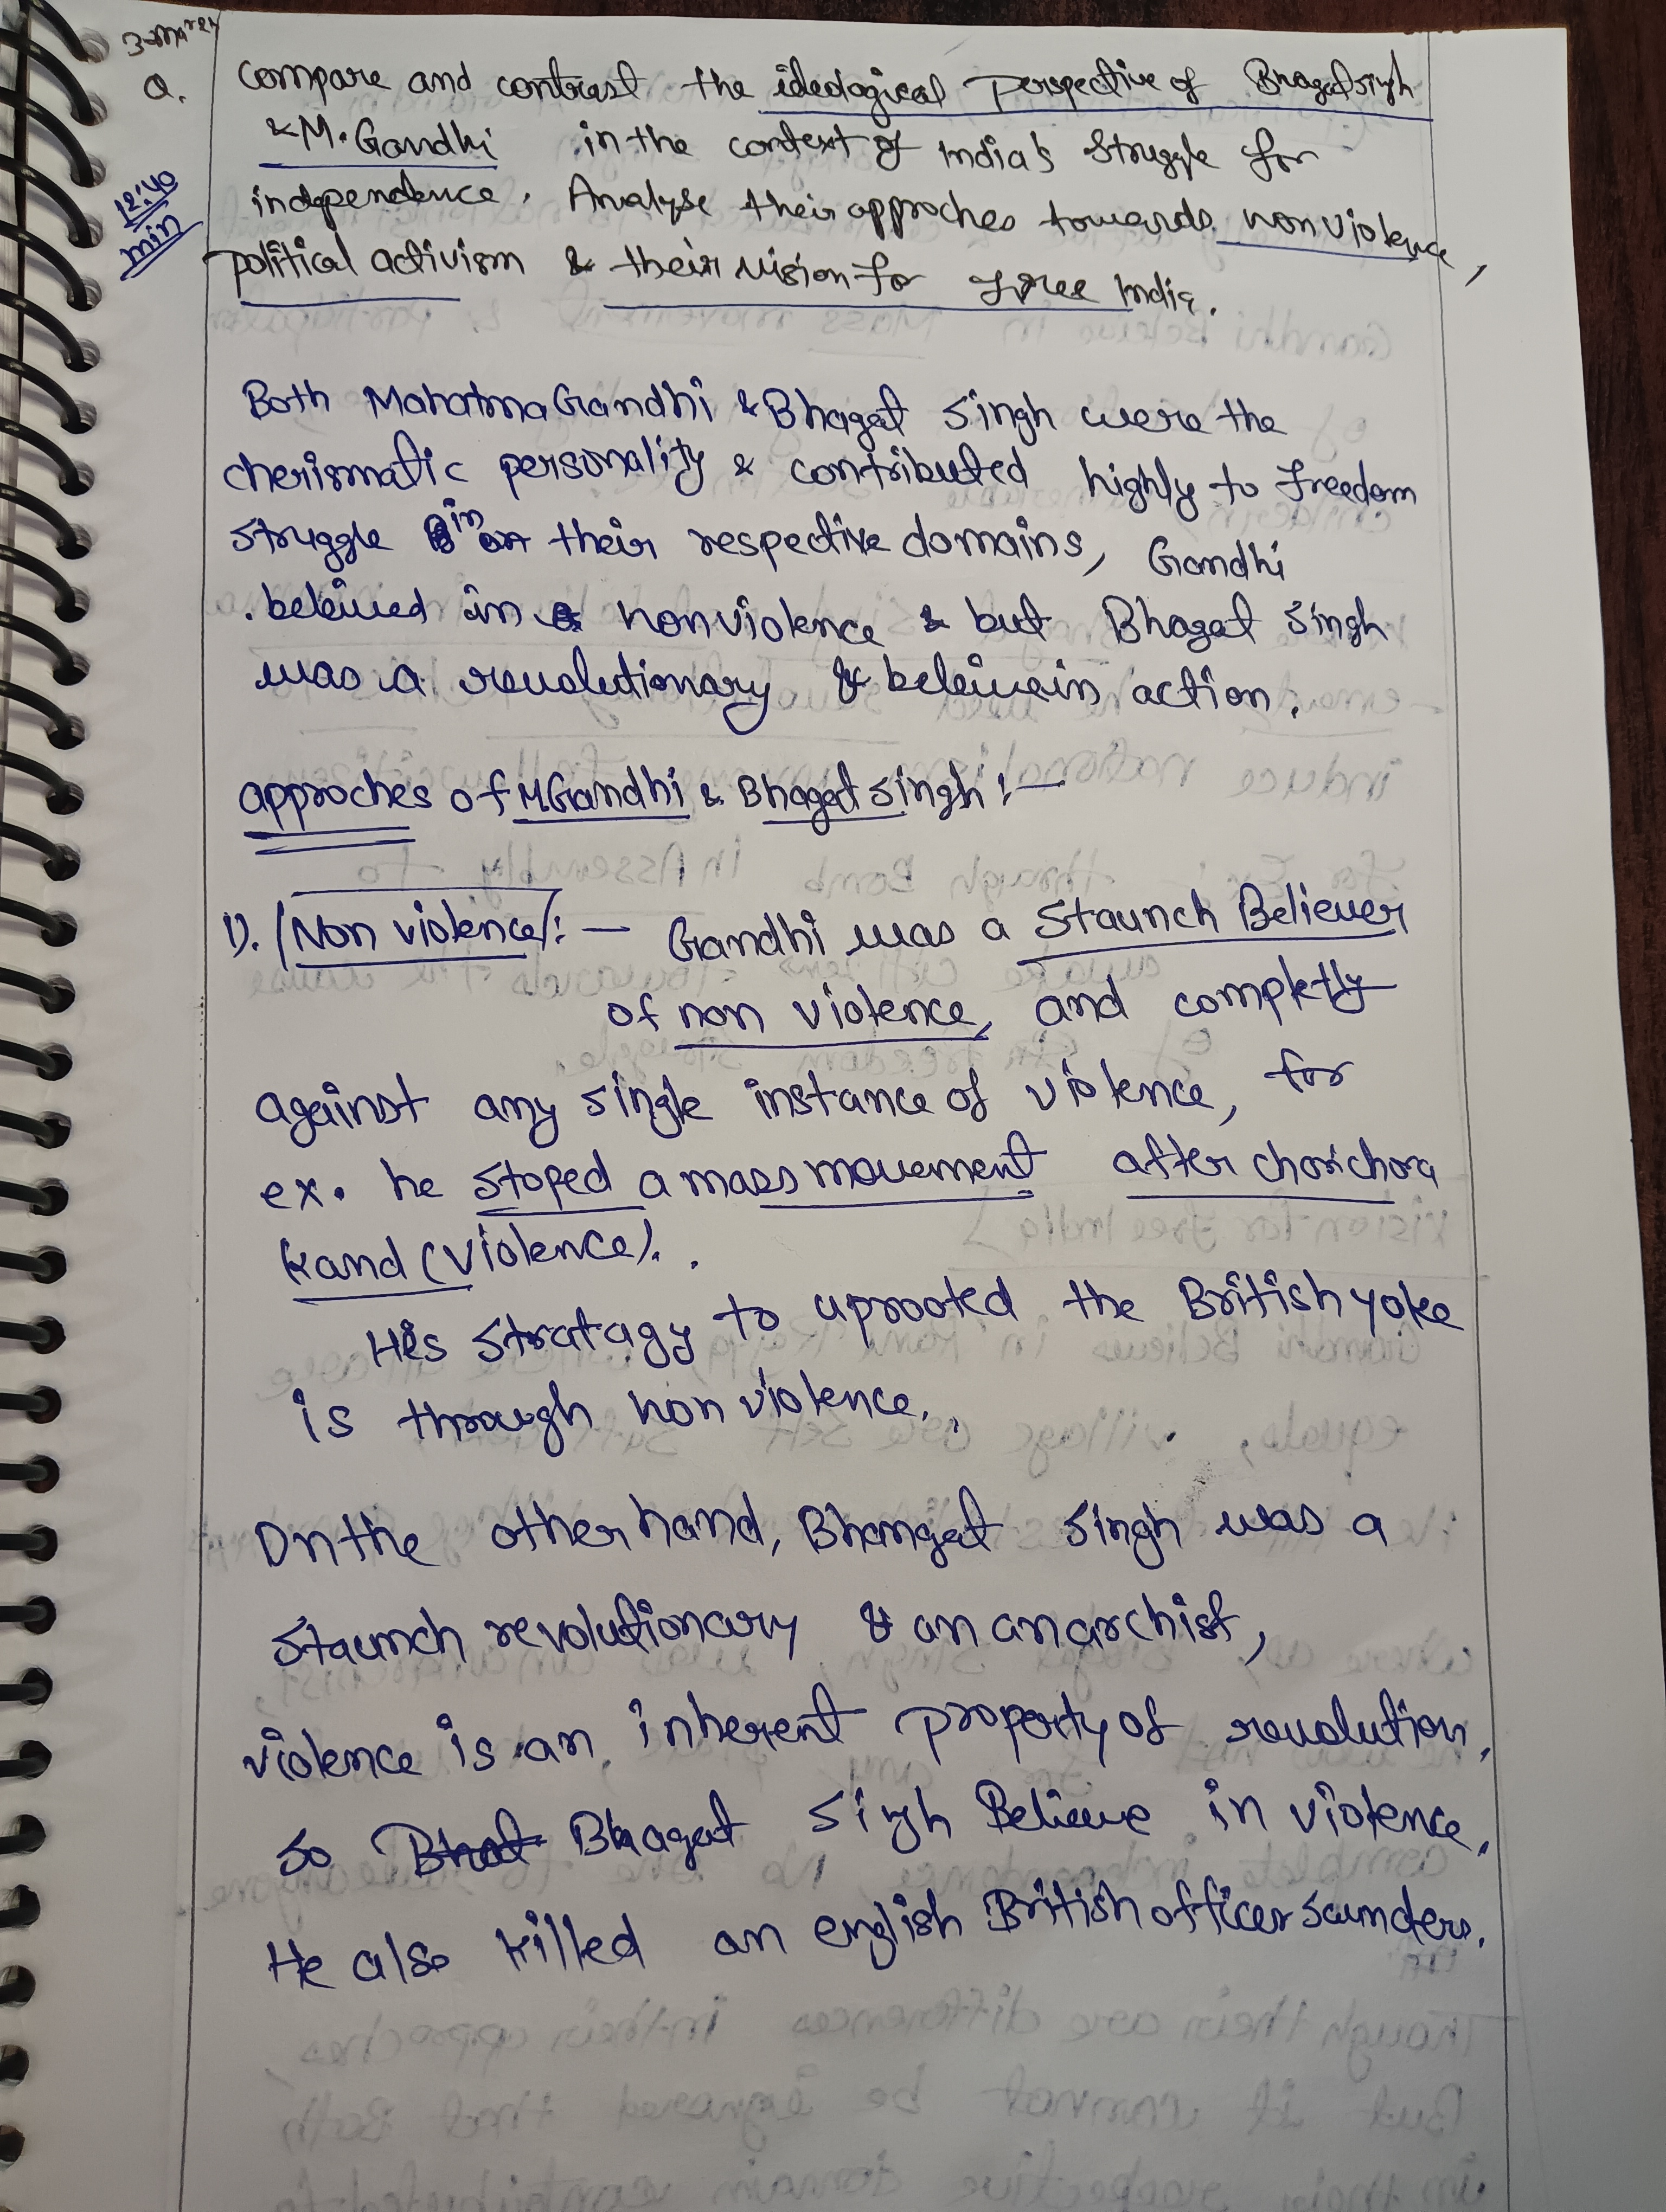 3-Mar'24
Q. Compare and contrast the ideological perspective of Bhagat singh
& M. Gandhi in the context of India's struggle for
independence. Analyse their approches towards nonviolence,
12:40
min
political activism & their vision for free India.
Both Mahatma Gandhi & Bhagat Singh were the
cherismatic personality & contributed highly to freedom
struggle in their respective domains, Gandhi
beleived in nonviolence but Bhagat Singh
was a revolutionary & beleive in action.
approches of M Gandhi & Bhagat Singh :-
1). Non violence :- Gandhi was a Staunch Believer
of non violence, and completly
against any single instance of violence, for
ex. he stoped a mass movement after chorichora
kand (violence).
His stratagy to uprooted the British yoke
is through non violence.
On the other hand, Bhangat Singh was a
staunch revolutionary & an anarchist,
violence is an inherent property of revolution,
so Bhagat Sigh Believe in violence,
He also killed an english British officer saunders.